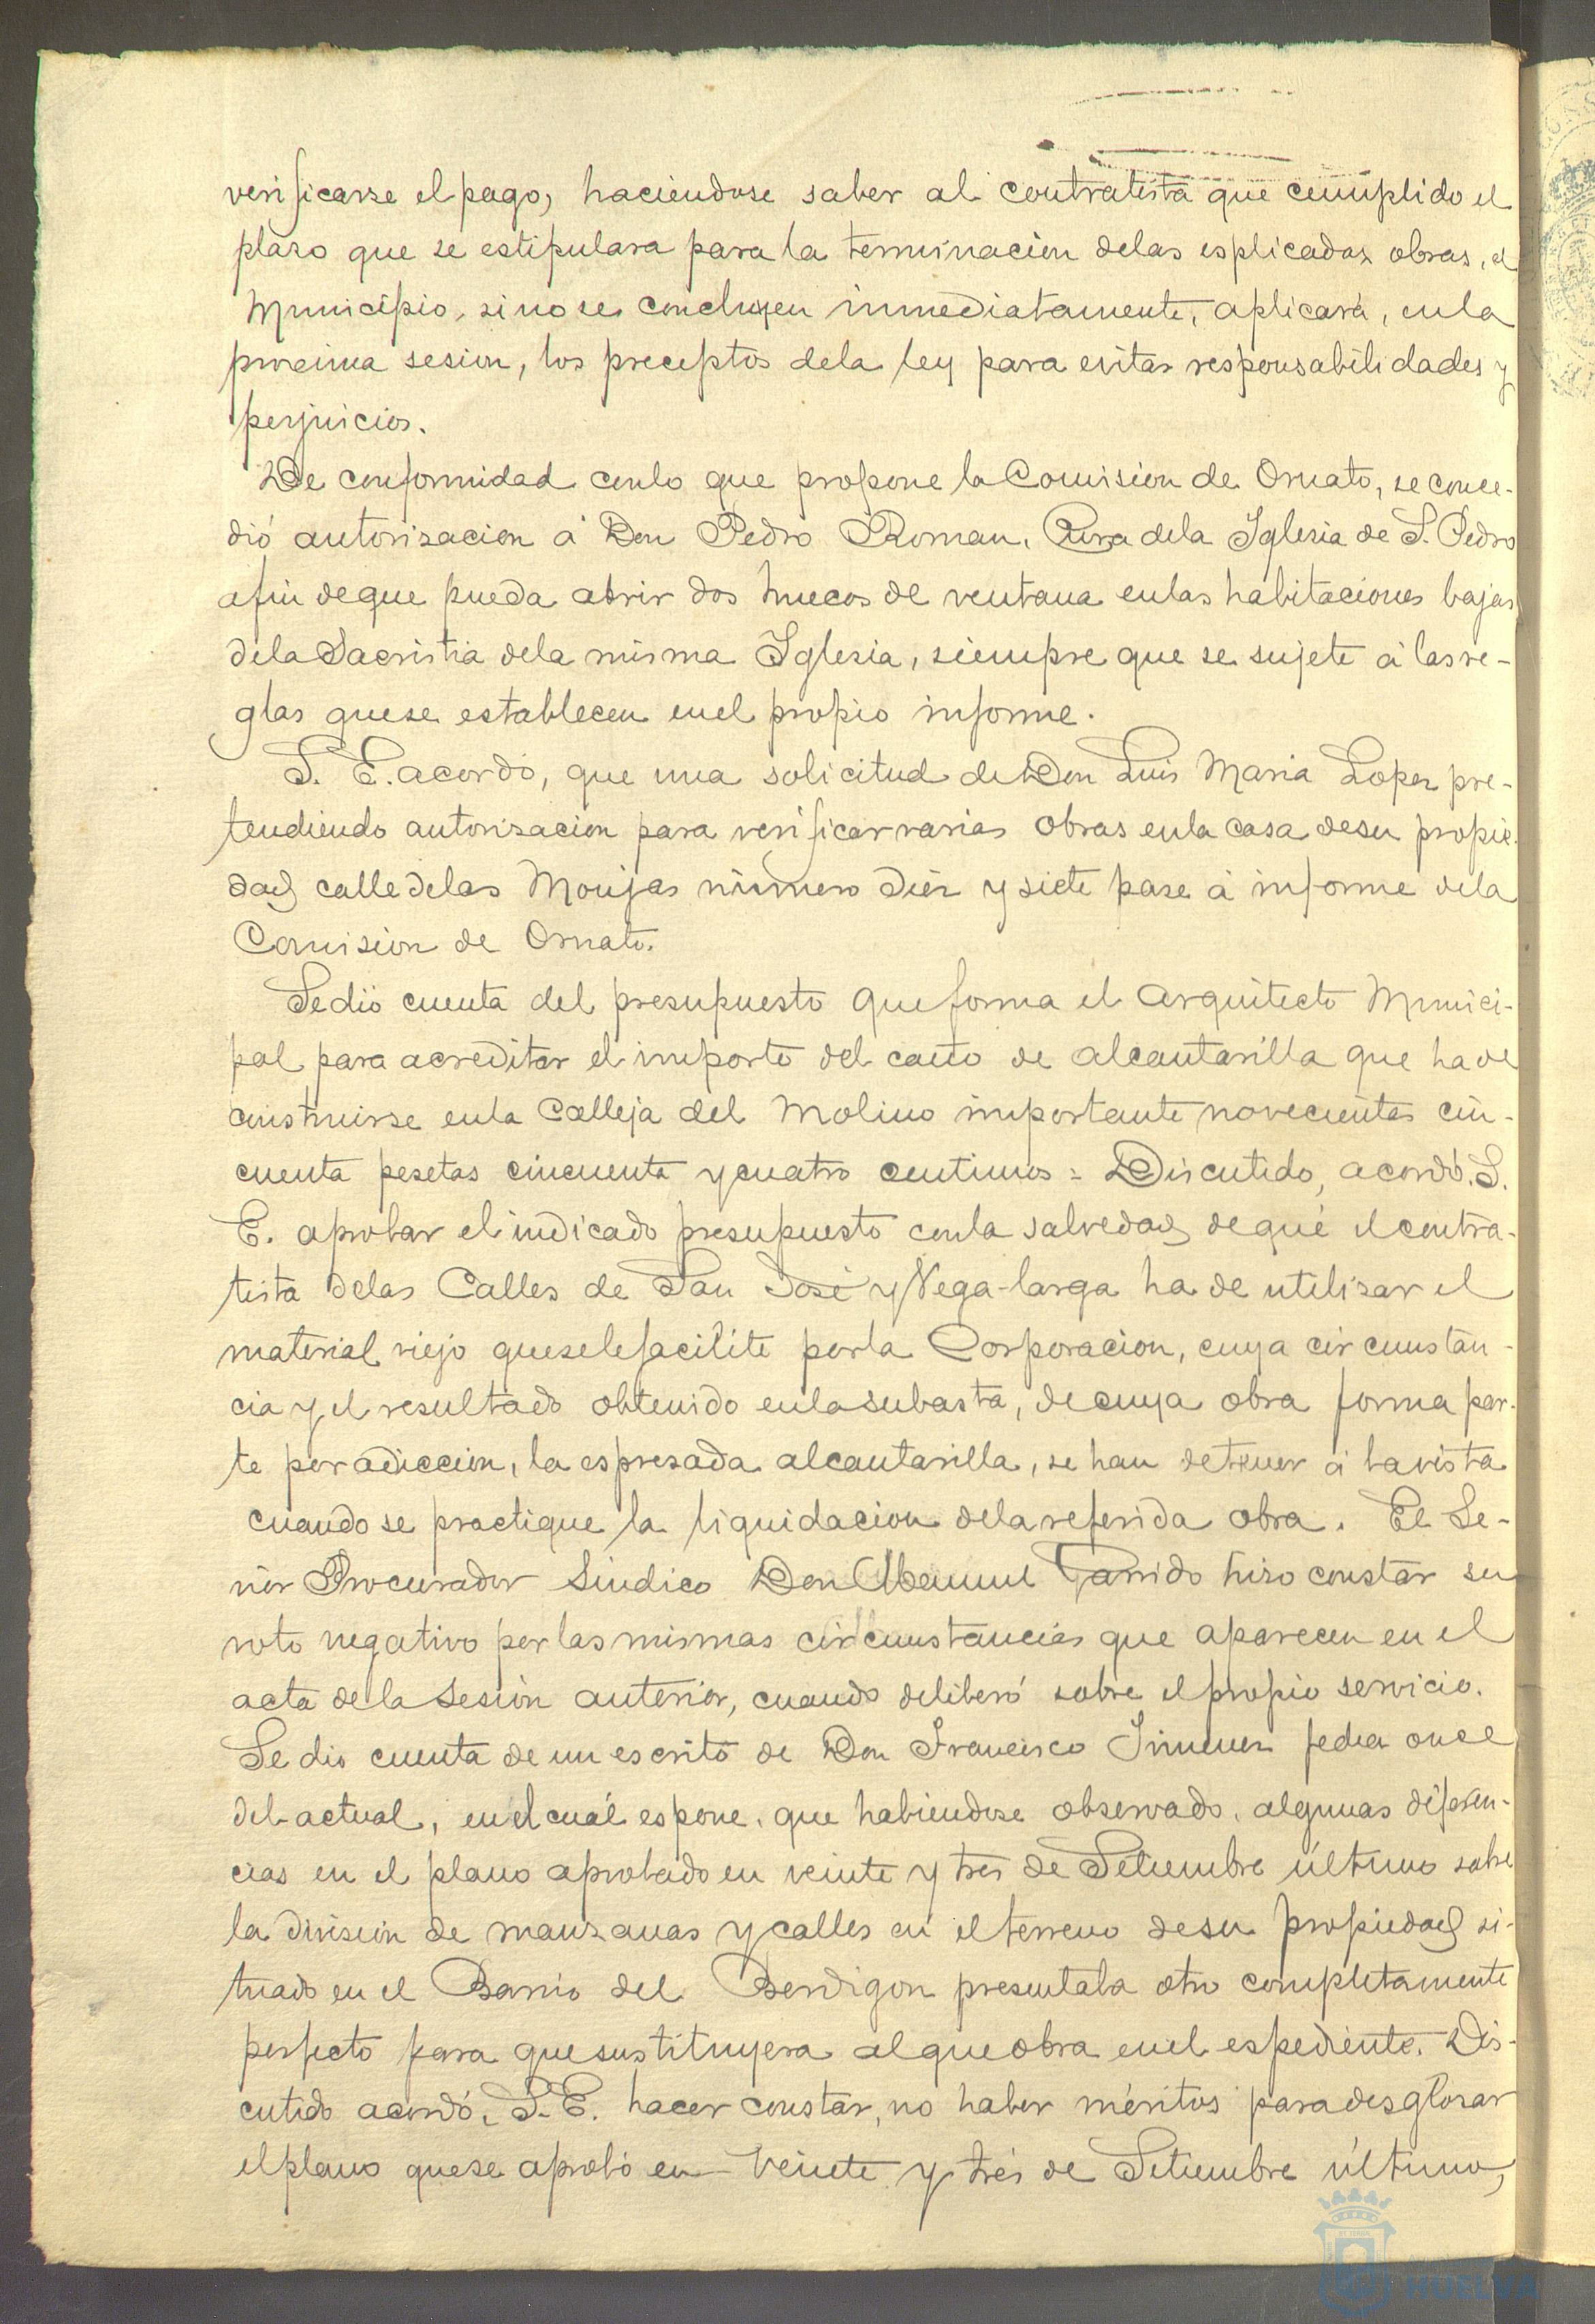 verificarse el pago, haciendose saber al contratista que cumplido el
plazo que se estipulara para la terminacion de las esplicadas obras, el
Municipio, si no se concluyen inmediatamente, aplicará, en la
procsima sesion, los preceptos de la ley para evitar responsabilidades y
perjuicios.
De conformidad con lo que propone la Comision de Ornato, se conce-
dió autorizacion á Don Pedro Roman, Cura de la Iglesia de S. Pedro
a fin de que pueda abrir dos huecos de ventana en las habitaciones bajas
de la Sacristia de la misma Iglesia, siempre que se sujete á las re-
glas que se establecen en el propio informe.
S. E. acordó, que una solicitud de Don Luis Maria Lopez pre-
tendiendo autorizacion para verificar varias obras en la casa de su propie-
dad calle de las Monjas número diez y siete pase á informe de la
Comision de Ornato.
Se dió cuenta del presupuesto que forma el Arquitecto Munici-
pal para acreditar el importe del caño de alcantarilla que ha de
construirse en la Calleja del Molino importante novecientas cin-
cuenta pesetas cincuenta y cuatro centimos = Discutido, acordó S.
E. aprobar el indicado presupuesto con la salvedad de que el contra-
tista de las Calles de San José y Vega-larga ha de utilizar el
material viejo que se le facilite por la Corporacion, cuya circunstan-
cia y el resultado obtenido en la subasta, de cuya obra forma par-
te por adiccion, la espresada alcantarilla, se han de tener á la vista
cuando se practique la liquidacion de la referida obra. El Se-
ñor Procurador Sindico Don Manuel Garrido hizo constar su
voto negativo por las mismas circunstancias que aparecen en el
acta de la sesion anterior, cuando deliberó sobre el propio servicio.
Se dio cuenta de un escrito de Don Francisco Jimenez fecha once
del actual, en el cuál espone, que habiendose observado, algunas diferen-
cias en el plano aprobado en veinte y tres de Setiembre último sobre
la division de manzanas y calles en el terreno de su propiedad si-
tuado en el Barrio del Berdigon presentaba otro completamente
perfecto para que sustituyera al que obra en el espediente. Dis-
cutido acordó, S. E. hacer constar, no haber méritos para desglosar
el plano que se aprobó en veinte y tres de Setiembre último,
HUELVA